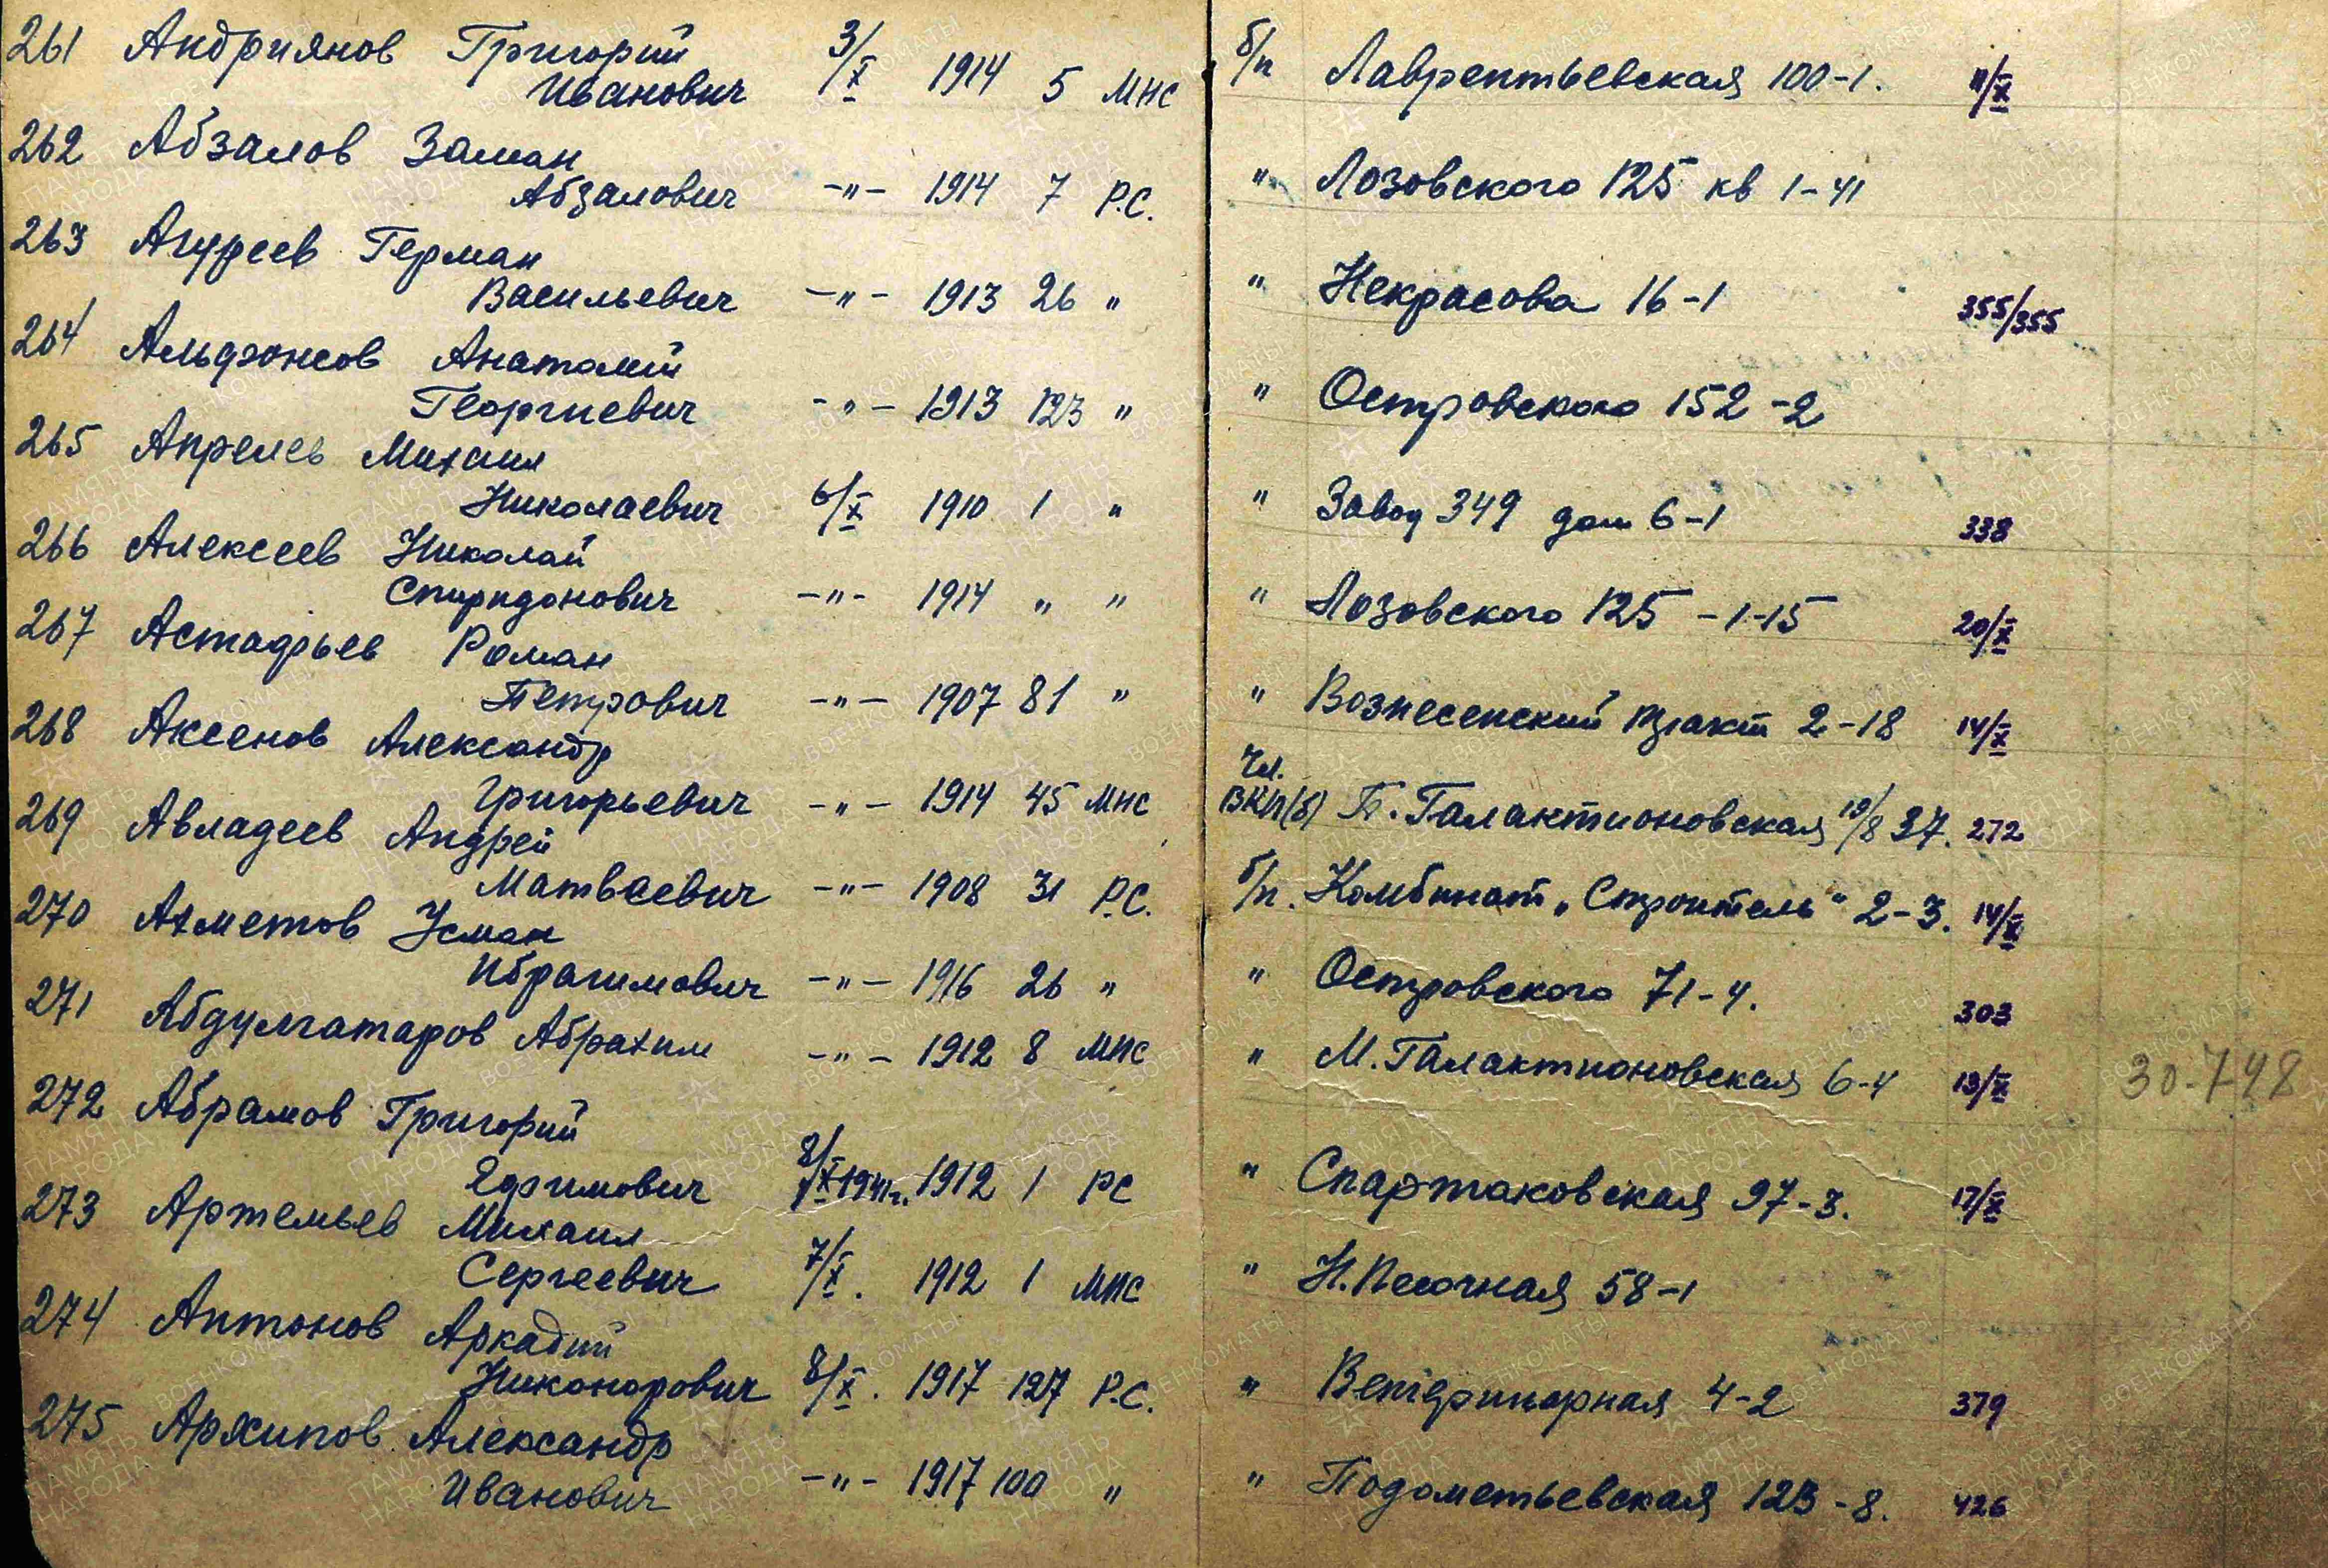 261 Андриянов Григорий
Иванович 3/X 1914 5 МНС б/п Лаврентьевская 100-1. 11/X
262 Абзалов Заман
Абзалович -"- 1914 7 Р.С. " Лозовского 125 кв 1-41
263 Агуреев Герман
Васильевич -"- 1913 26 " " Некрасова 16-1 355/355
264 Альфонсов Анатолий
Георгиевич -"- 1913 123 " " Островского 152-2
265 Апрелев Михаил
Николаевич 6/X 1910 1 " " Завод 349 дом 6-1 338
266 Алексеев Николай
Спиридонович -"- 1914 " " " Лозовского 125-1-15 20/X
267 Астафьев Роман
Петрович -"- 1907 81 " " Вознесенский тракт 2-18 14/X
268 Аксенов Александр
Григорьевич -"- 1914 45 МНС Чл. ВКП(б) Б. Галактионовская 37. 272
269 Авладеев Андрей
Матвеевич -"- 1908 31 Р.С. б/п. Комбинат „Строитель" 2-3. 14/X
270 Ахметов Усман
Ибрагимович -"- 1916 26 " " Островского 71-4. 303
271 Абдулгатаров Абрахим -"- 1912 8 МНС " М. Галактионовская 6-4 13/X 30-7-48
272 Абрамов Григорий
Ефимович 8/X-1941г. 1912 1 РС " Спартаковская 97-3. 17/X
273 Артемьев Михаил
Сергеевич 7/X. 1912 1 МНС " Н. Песочная 58-1
274 Антонов Аркадий
Никонорович 8/X. 1917 127 Р.С. " Ветеринарная 4-2 379
275 Архипов Александр
Иванович -"- 1917 100 " " Подометьевская 123-8. 426
ПАМЯТЬ НАРОДА
ВОЕНКОМАТЫ